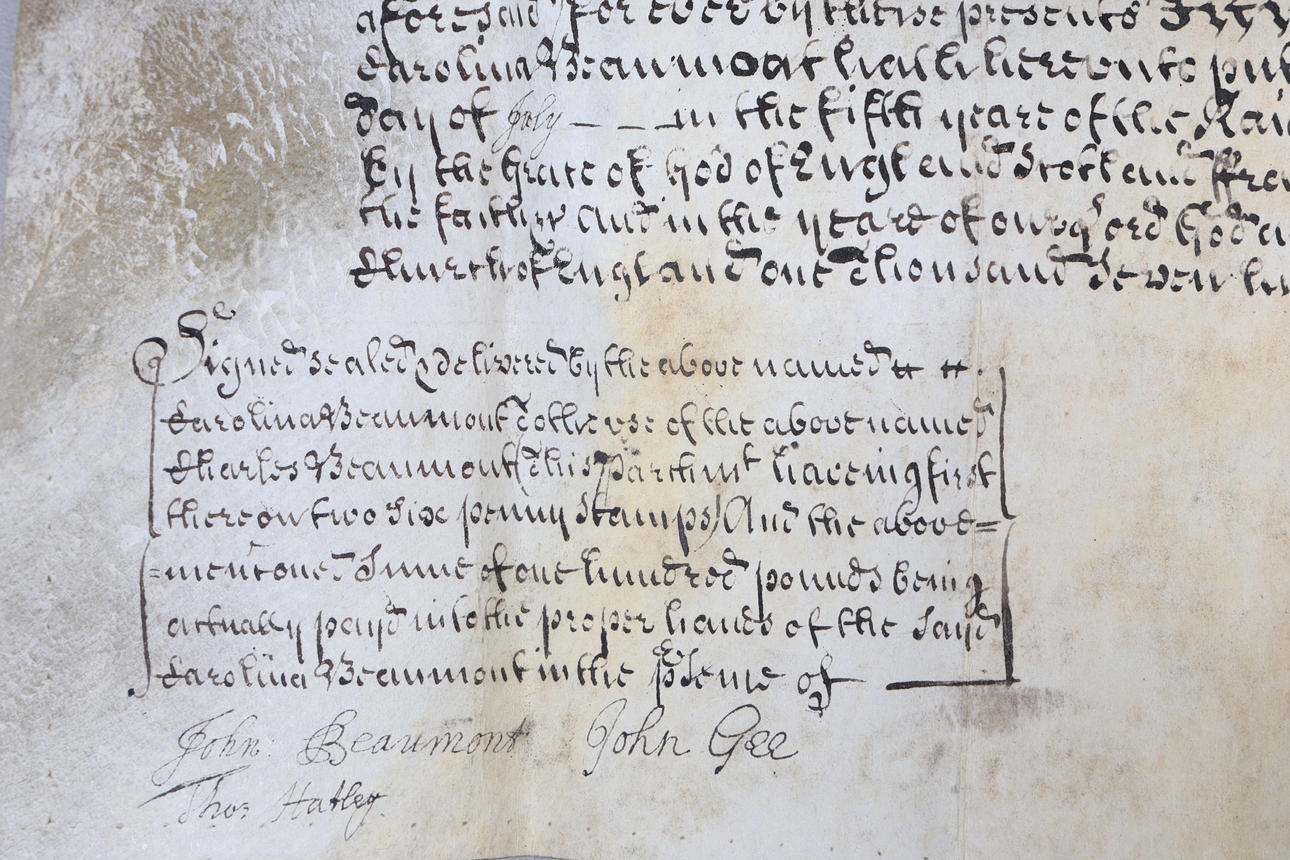 aforesaid for ever by these presents In
Carolina Beaumont hath hereunto put
day of July in the fifth yeare of the Rai
by the grace of God of England Scotland ffra
the faith &c And in the yeare of our Lord God a
Church of England one Thousand Seven hu
Signed sealed & delivered by the above named
Carolina Beaumont To the use of the above named
Charles Beaumont (This Parchmt haveing first
thereon two Six penny Stamps) And the above=
=mentoned Summe of one hundred pounds being
actually payd into the proper hands of the Sayd
Carolina Beaumont in the pSence of
John Beaumont John Gee
Tho: Hatley